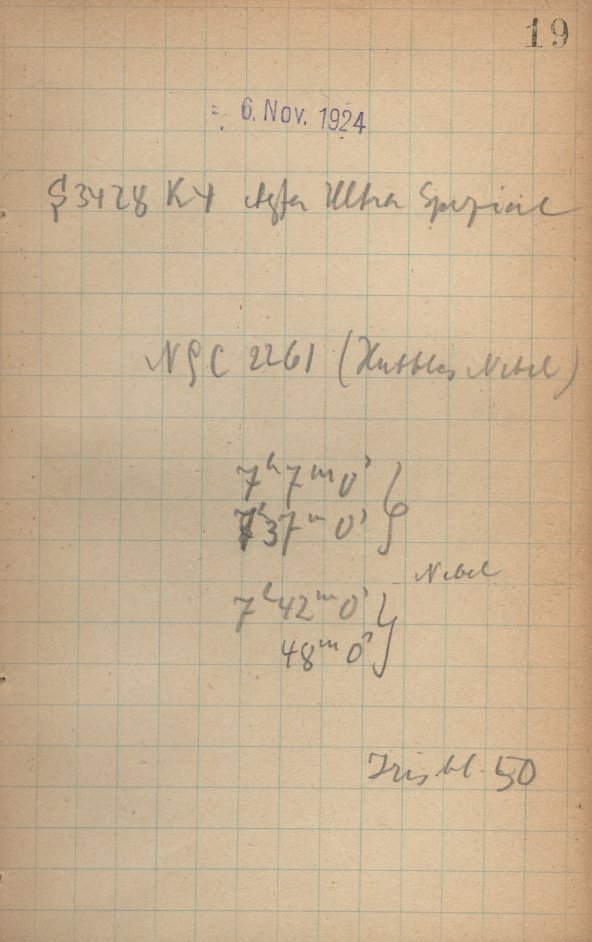 19
6. Nov. 1924
S 3428 K4 Agfa Ultra Spezial
NGC 2261 (Hubbles Nebel)
7h 7m 0s
7h 37m 0s
Nebel
7h 42m 0s
48m 0s
Irisbl. 50